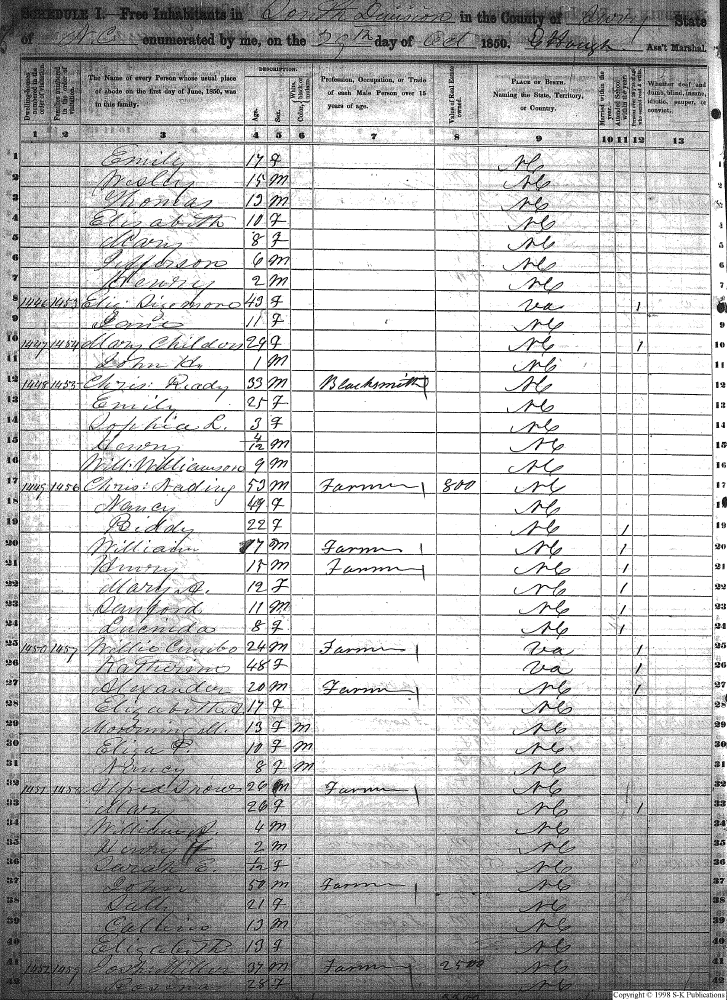 SCHEDULE I.—Free Inhabitants in South Division in the County of Surry State
of N.C. enumerated by me, on the 29th day of Oct 1850. Ass't Marshal.
Dwelling-houses numbered in the order of visitation.
Families numbered in the order of visitation.
The Name of every Person whose usual place of abode on the first day of June, 1850, was in this family.
DESCRIPTION.
Age.
Sex.
White, black, or mulatto.
Color,
Profession, Occupation, or Trade of each Male Person over 15 years of age.
Value of Real Estate owned.
PLACE OF BIRTH. Naming the State, Territory, or Country.
Married within the year.
Attended School within the year.
Whether deaf and dumb, blind, insane, idiotic, pauper, or convict.
1 2 3 4 5 6 7 8 9 10 11 12 13
1 Emily 17 F NC 1
2 Wesley 15 M NC 2
3 Thomas 13 M NC
4 Elizabeth 10 F NC 4
5 Mary 8 F NC 5
6 Jefferson 6 M NC 6
7 Henry 2 M NC 7
8 1446 1453 Eliz Sizemore 43 F Va 1 8
9 Jane 11 F NC 9
10 1447 1454 Mary Childon 29 F NC 1 10
11 John H. 1 M NC 11
12 1448 1455 Chris: Ready 33 M Blacksmith NC 12
13 Emily 25 F NC 13
14 Sophia L. 3 F NC 14
15 Henry 4/12 M NC 15
16 Will: Williamson 9 M NC 16
17 1449 1456 Chris: Nading 53 M Farmer 800 NC 17
18 Nancy 49 F NC 18
19 Biddy 22 F NC 1 19
20 William 17 M Farmer NC 1 20
21 Henry 15 M Farmer NC 1 21
22 Mary A. 12 F NC 1 22
23 Sanford 11 M NC 1 23
24 Lucinda 8 F NC 1 24
25 1450 1457 Willie Cumbo 24 M Farmer Va 1 25
26 Katherine 48 F Va 1 26
27 Alexander 20 M Farmer NC 1 27
28 Elizabeth 17 F NC 28
29 Mourning M. 13 F M NC 29
30 Eliza P. 10 F M NC 30
31 Nancy 8 F M NC 31
32 1451 1458 Alfred Snow 26 M Farmer NC 32
33 Mary 26 F NC 1 33
34 William A. 4 M NC 34
35 Henry 2 M NC 35
36 Sarah E. 1/12 F NC 36
37 John 50 M Farmer NC 37
38 Sally 21 F NC 38
39 Calvin 13 M NC 39
40 Elizabeth 13 F NC 40
41 1452 1459 37 M Farmer 2500 NC 41
42 28 F NC 42
Copyright © 1998 S-K Publications